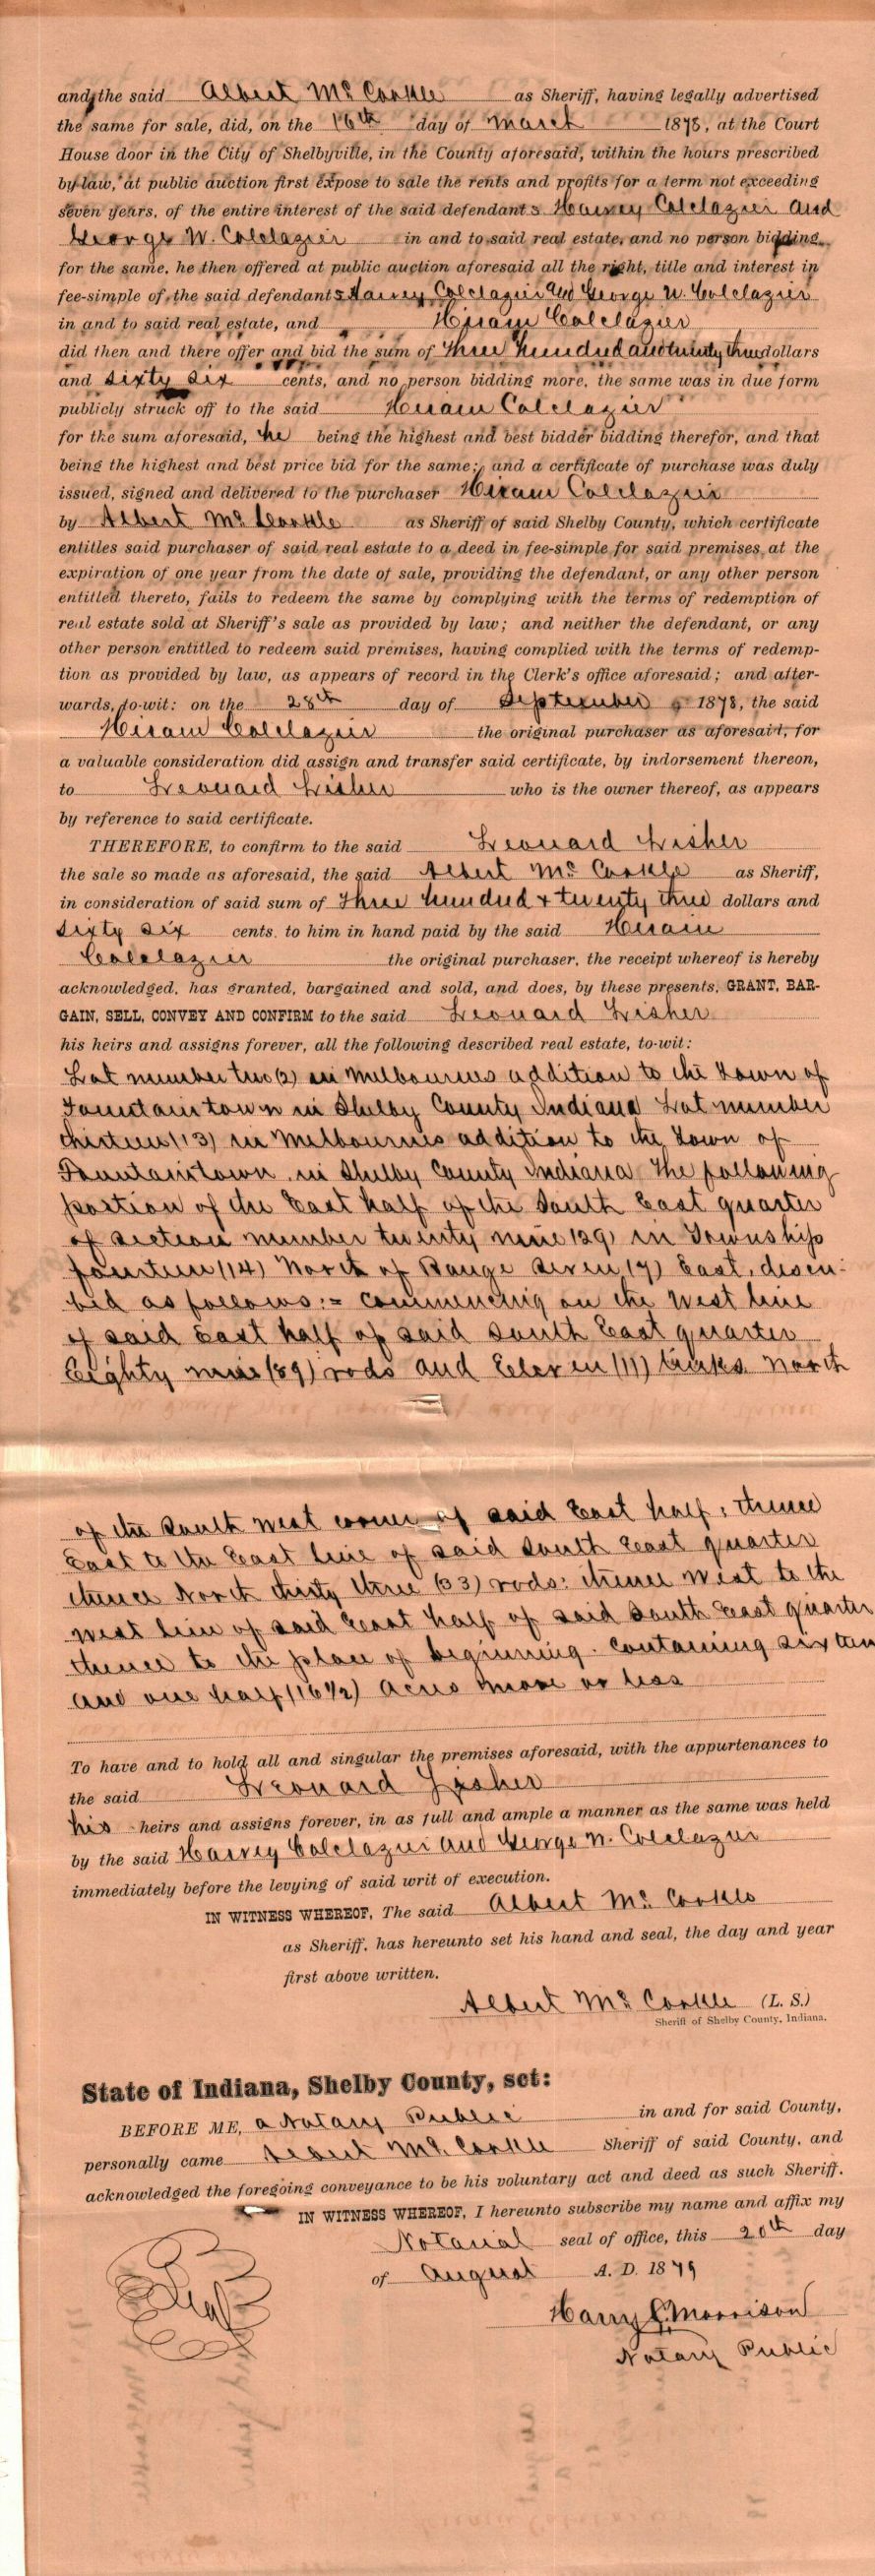 and the said Albert Mc Corkle as Sheriff, having legally advertised
the same for sale, did, on the 16th day of March 1878, at the Court
House door in the City of Shelbyville, in the County aforesaid, within the hours prescribed
by law, at public auction first expose to sale the rents and profits for a term not exceeding
seven years, of the entire interest of the said defendants Harvey Colclazier and
George W. Colclazier in and to said real estate, and no person bidding
for the same, he then offered at public auction aforesaid all the right, title and interest in
fee-simple of the said defendants Harvey Colclazier and George W. Colclazier
in and to said real estate, and Hiram Colclazier
did then and there offer and bid the sum of Three hundred and twenty three dollars
and sixty six cents, and no person bidding more, the same was in due form
publicly struck off to the said Hiram Colclazier
for the sum aforesaid, he being the highest and best bidder bidding therefor, and that
being the highest and best price bid for the same; and a certificate of purchase was duly
issued, signed and delivered to the purchaser Hiram Colclazier
by Albert Mc Corkle as Sheriff of said Shelby County, which certificate
entitles said purchaser of said real estate to a deed in fee-simple for said premises, at the
expiration of one year from the date of sale, providing the defendant, or any other person
entitled thereto, fails to redeem the same by complying with the terms of redemption of
real estate sold at Sheriff's sale as provided by law; and neither the defendant, or any
other person entitled to redeem said premises, having complied with the terms of redemp-
tion as provided by law, as appears of record in the Clerk's office aforesaid; and after-
wards, to-wit: on the 28th day of September 1878, the said
Hiram Colclazier the original purchaser as aforesaid, for
a valuable consideration did assign and transfer said certificate, by indorsement thereon,
to Leonard Fisher who is the owner thereof, as appears
by reference to said certificate.
THEREFORE, to confirm to the said Leonard Fisher
the sale so made as aforesaid, the said Albert Mc Corkle as Sheriff,
in consideration of said sum of Three hundred & twenty three dollars and
sixty six cents, to him in hand paid by the said Hiram
Colclazier the original purchaser, the receipt whereof is hereby
acknowledged, has granted, bargained and sold, and does, by these presents, GRANT, BAR-
GAIN, SELL, CONVEY AND CONFIRM to the said Leonard Fisher
his heirs and assigns forever, all the following described real estate, to-wit:
Lot number two (2) in Melbournes addition to the town of
Fountaintown in Shelby County Indiana Lot number
thirteen (13) in Melbournes addition to the town of
Fountaintown in Shelby County Indiana The following
portion of the East half of the South East quarter
of section number twenty nine (29) in Township
fourteen (14) North of Range Seven (7) East, descri-
bed as follows:= commencing on the West line
of said East half of said South East quarter
Eighty nine (89) rods and Eleven (11) links North
of the South West corner of said East half; thence
East to the East line of said South East quarter
thence North thirty three (33) rods: thence West to the
West line of said East half of said South East quarter
thence to the place of beginning. Containing sixteen
and one half (16 1/2) Acres more or less
To have and to hold all and singular the premises aforesaid, with the appurtenances to
the said Leonard Fisher
his heirs and assigns forever, in as full and ample a manner as the same was held
by the said Harvey Colclazier and George W. Colclazier
immediately before the levying of said writ of execution.
IN WITNESS WHEREOF, The said Albert Mc Corkle
as Sheriff, has hereunto set his hand and seal, the day and year
first above written.
Albert Mc Corkle (L. S.)
Sheriff of Shelby County, Indiana.
State of Indiana, Shelby County, sct:
BEFORE ME, a Notary Public in and for said County,
personally came Albert Mc. Corkle Sheriff of said County, and
acknowledged the foregoing conveyance to be his voluntary act and deed as such Sheriff.
IN WITNESS WHEREOF, I hereunto subscribe my name and affix my
Notarial seal of office, this 20th day
of August A. D. 1879
Seal
Harry C. Morrison
Notary Public